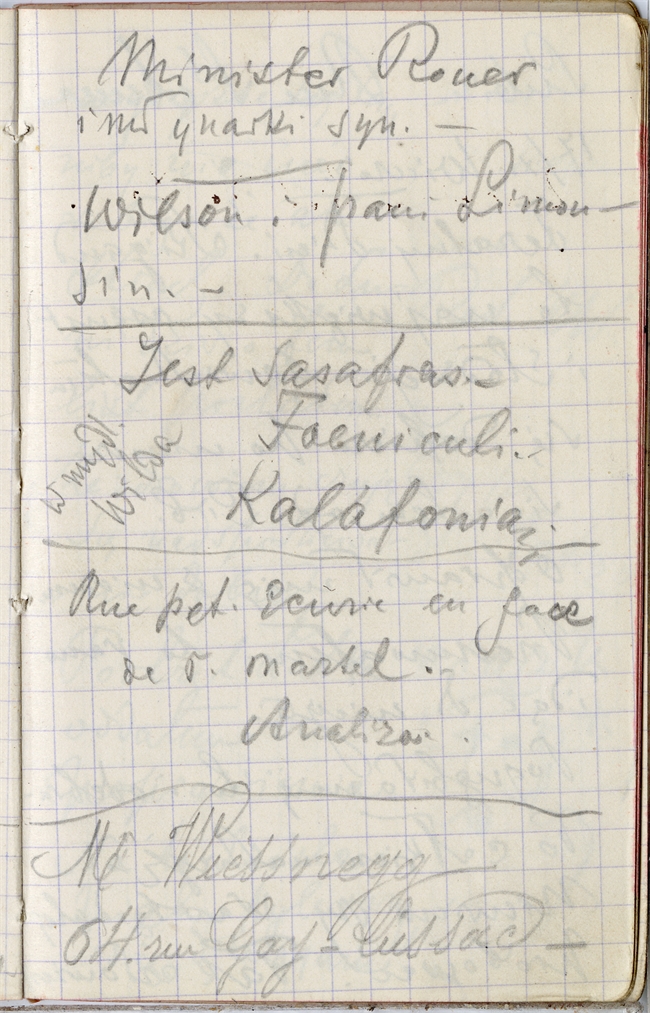 Minister Rouer
i młynarki syn. —
Wilson i pani Limon-
sin. —
Jest Sasafras. —
Foeniculi. —
Kalafonia.
Rue pet. Ecurie en face
de r. Martel. —
Analiza.
Mr Wiessnegg
64. rue Gay-Lussac —